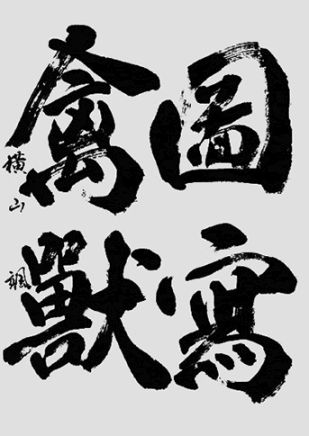 圖寫
禽獸
横山
颯